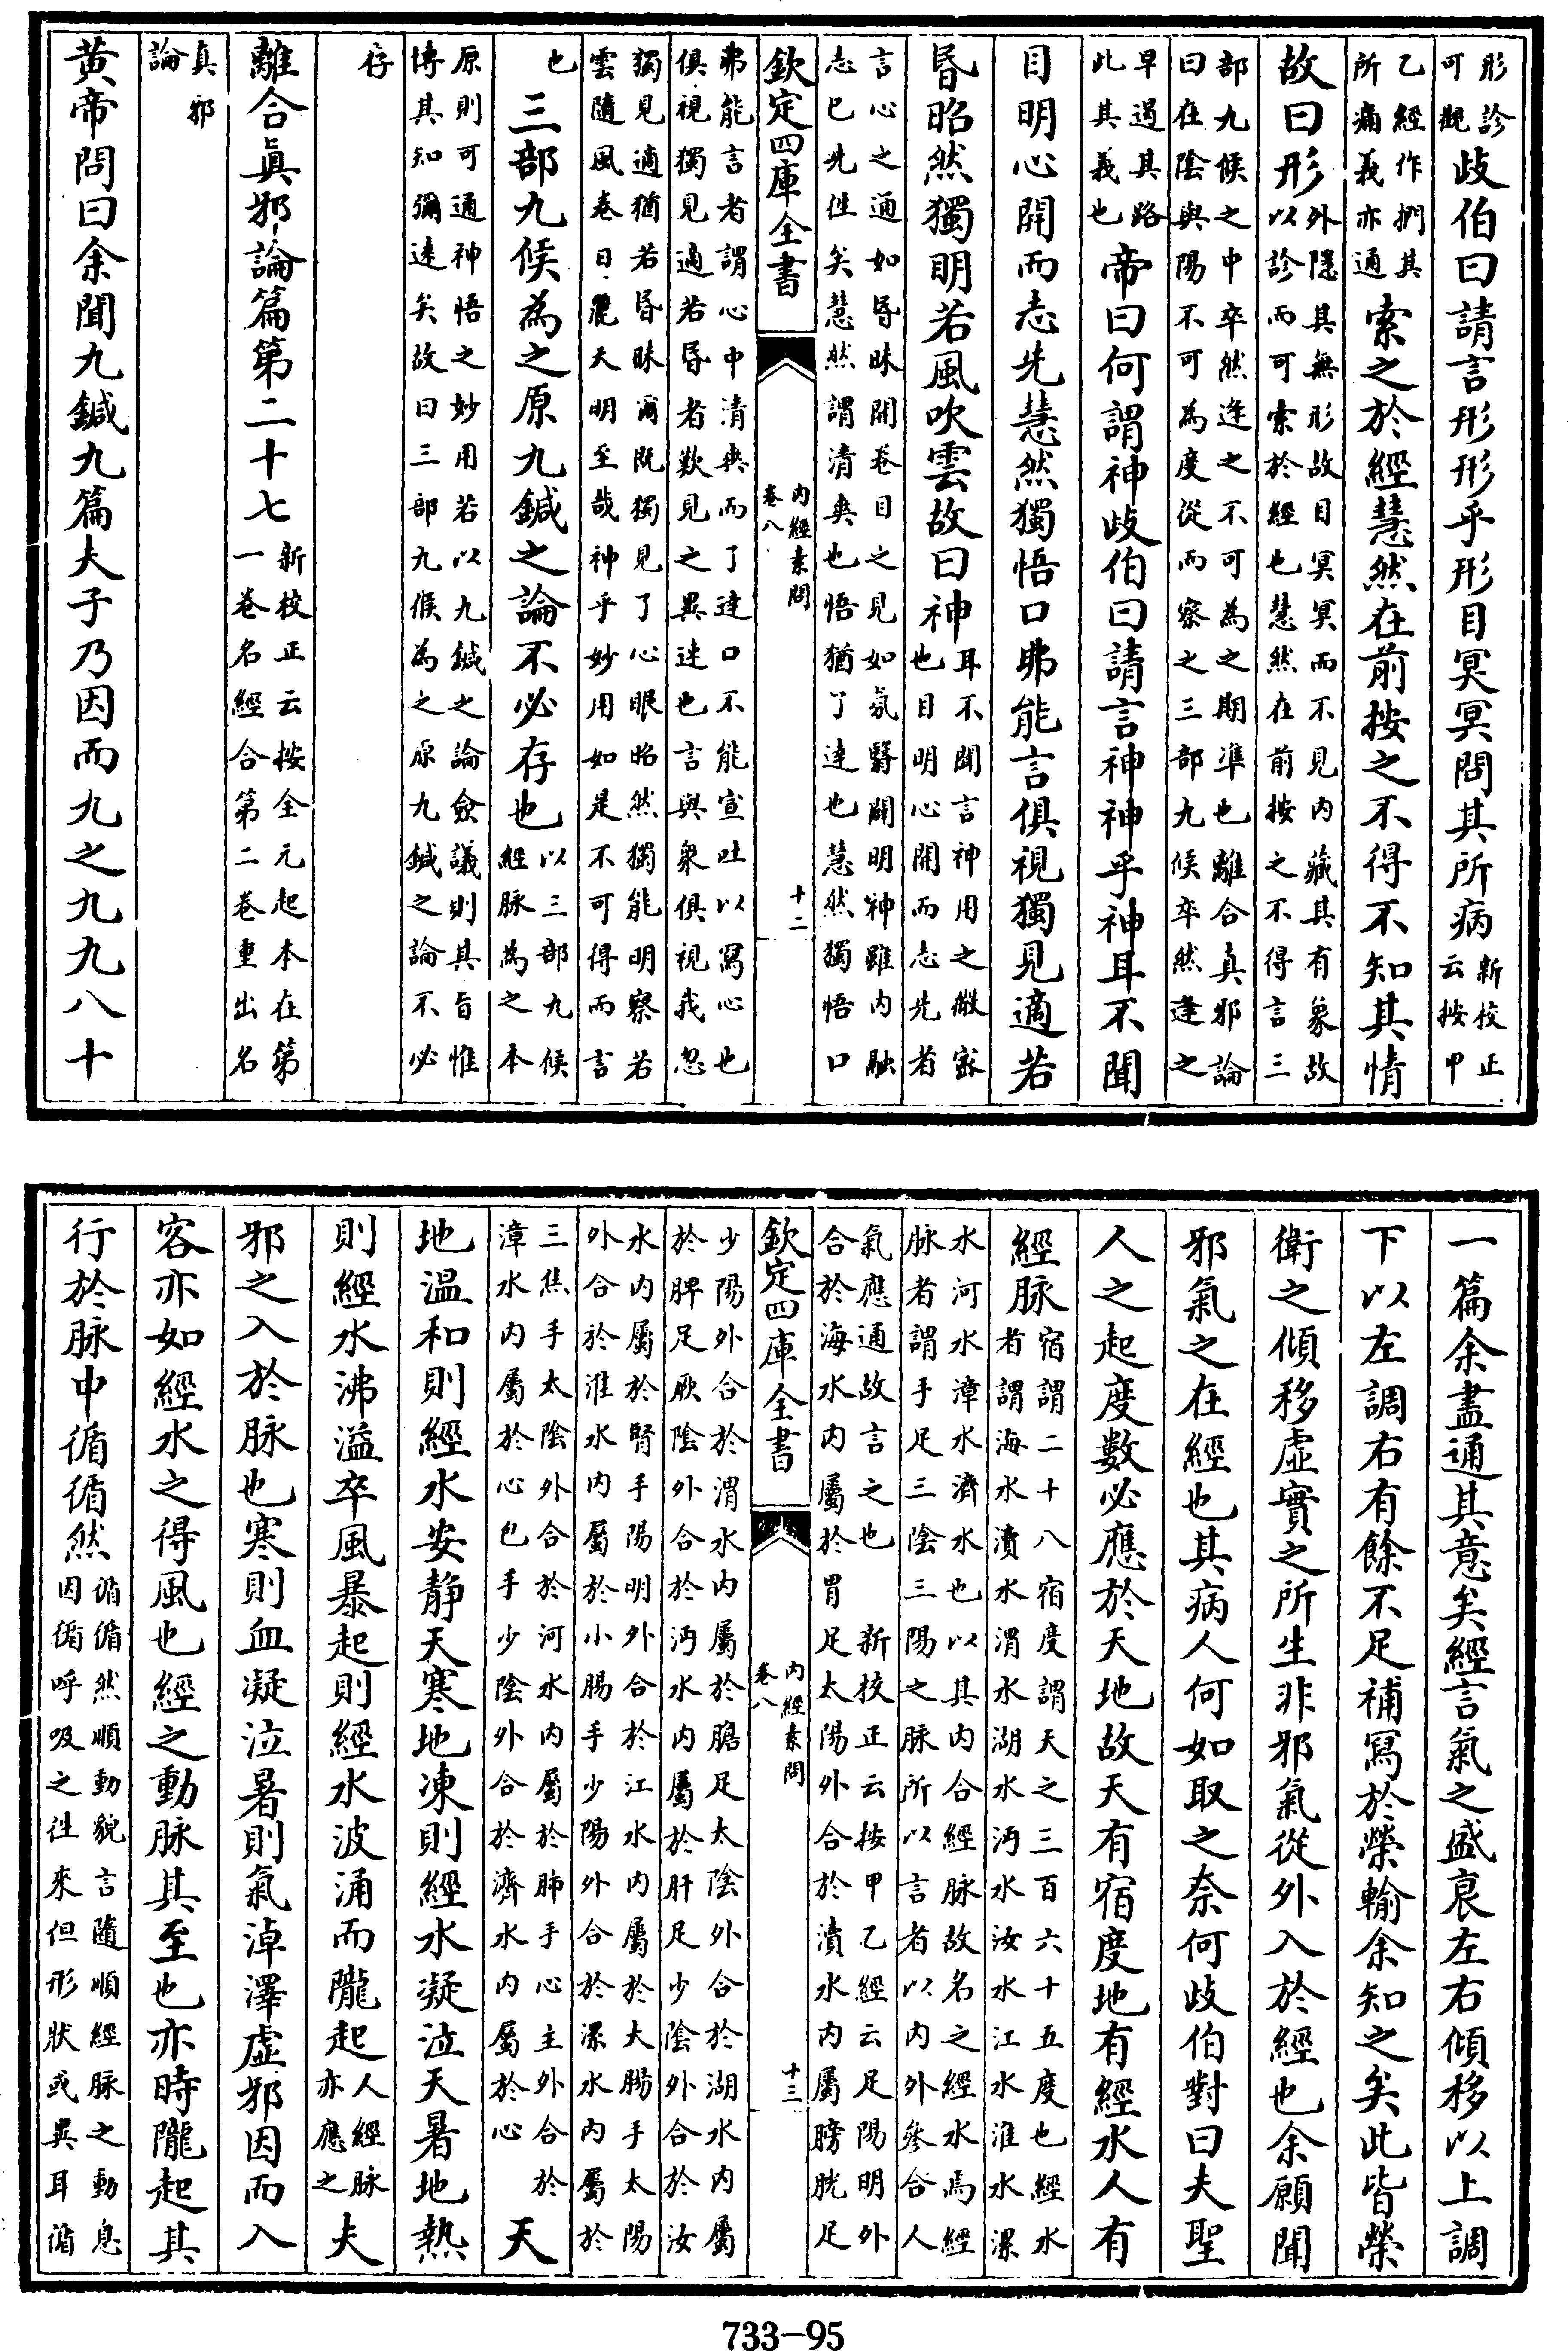 形診可觀歧伯曰請言形形乎形目冥冥問其所病新校正云按甲
乙經作捫其所痛義亦通索之於經慧然在前按之不得不知其情
故曰形外隱其無形故目冥冥而不見内藏其有象故以診而可索於經也慧然在前按之不得言三
部九候之中卒然逢之不可為之期準也離合真邪論曰在陰與陽不可為度從而察之三部九候卒然逢之
早遏其路此其義也帝曰何謂神歧伯曰請言神神乎神耳不聞
目明心開而志先慧然獨悟口弗能言俱視獨見適若
昏昭然獨明若風吹雲故曰神耳不聞言神用之微宻也目明心開而志先者
言心之通如昏昧開卷目之見如氛翳闢明神雖内融志已先往矣慧然謂清爽也悟猶了達也慧然獨悟口
欽定四庫全書 内經素問 卷八 十二
弗能言者謂心中清爽而了達口不能宣吐以寫心也俱視獨見適若昏者歎見之異速也言與衆俱視我忽
獨見適猶若昏昧爾既獨見了心眼昭然獨能明察若雲隨風卷日麗天明至哉神乎妙用如是不可得而言
也三部九候為之原九鍼之論不必存也以三部九候經脉為之本
原則可通神悟之妙用若以九鍼之論僉議則其旨惟博其知彌遠矣故曰三部九候為之原九鍼之論不必
存
離合眞邪論篇第二十七新校正云按全元起本在第一卷名經合第二卷重出名
真邪論
黄帝問曰余聞九鍼九篇夫子乃因而九之九九八十
一篇余盡通其意矣經言氣之盛衰左右傾移以上調
下以左調右有餘不足補寫於榮輸余知之矣此皆榮
衛之傾移虚實之所生非邪氣從外入於經也余願聞
邪氣之在經也其病人何如取之奈何歧伯對曰夫聖
人之起度數必應於天地故天有宿度地有經水人有
經脉宿謂二十八宿度謂天之三百六十五度也經水者謂海水瀆水渭水湖水沔水汝水江水淮水漯
水河水漳水濟水也以其内合經脉故名之經水焉經脉者謂手足三陰三陽之脉所以言者以内外參合人
氣應通故言之也新校正云按甲乙經云足陽明外合於海水内屬於胃足太陽外合於瀆水内屬膀胱足
欽定四庫全書 内經素問 卷八 十三
少陽外合於渭水内屬於膽足太陰外合於湖水内屬於脾足厥陰外合於沔水内屬於肝足少陰外合於汝
水内屬於腎手陽明外合於江水内屬於大腸手太陽外合於淮水内屬於小腸手少陽外合於漯水内屬於
三焦手太陰外合於河水内屬於肺手心主外合於漳水内屬於心包手少陰外合於濟水内屬於心天
地温和則經水安静天寒地凍則經水凝泣天暑地熱
則經水沸溢卒風暴起則經水波涌而隴起人經脉亦應之夫
邪之入於脉也寒則血凝泣暑則氣淖澤虚邪因而入
客亦如經水之得風也經之動脉其至也亦時隴起其
行於脉中循循然循循然順動貌言隨順經脉之動息因循呼吸之往來但形狀或異耳循
733-95